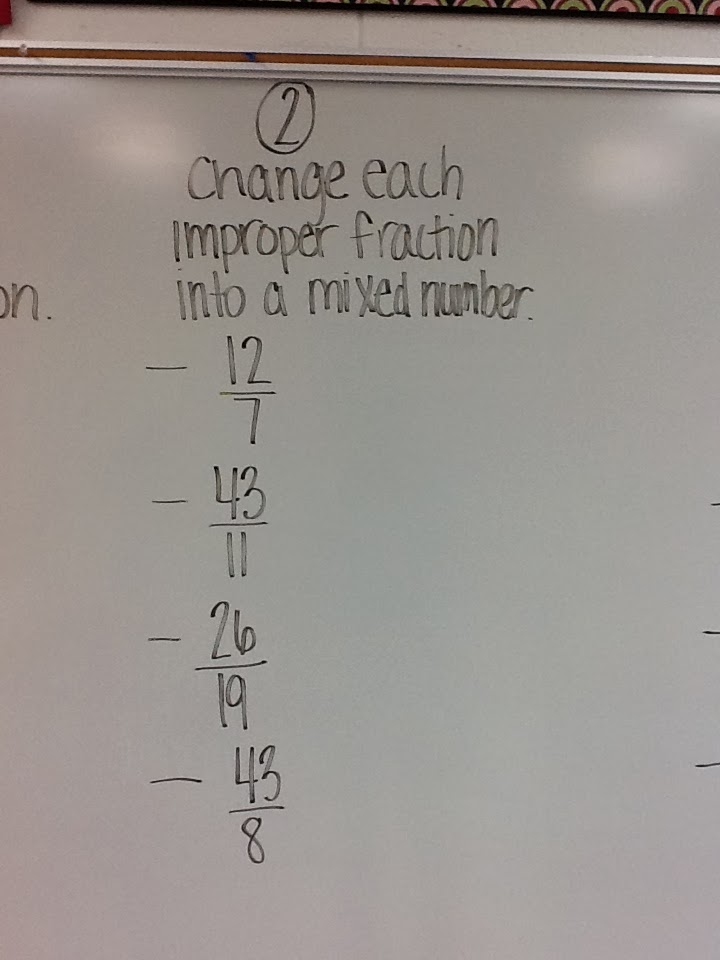 ②
Change each
improper fraction
on. into a mixed number.
- 12/7
- 43/11
- 26/19
- 43/8